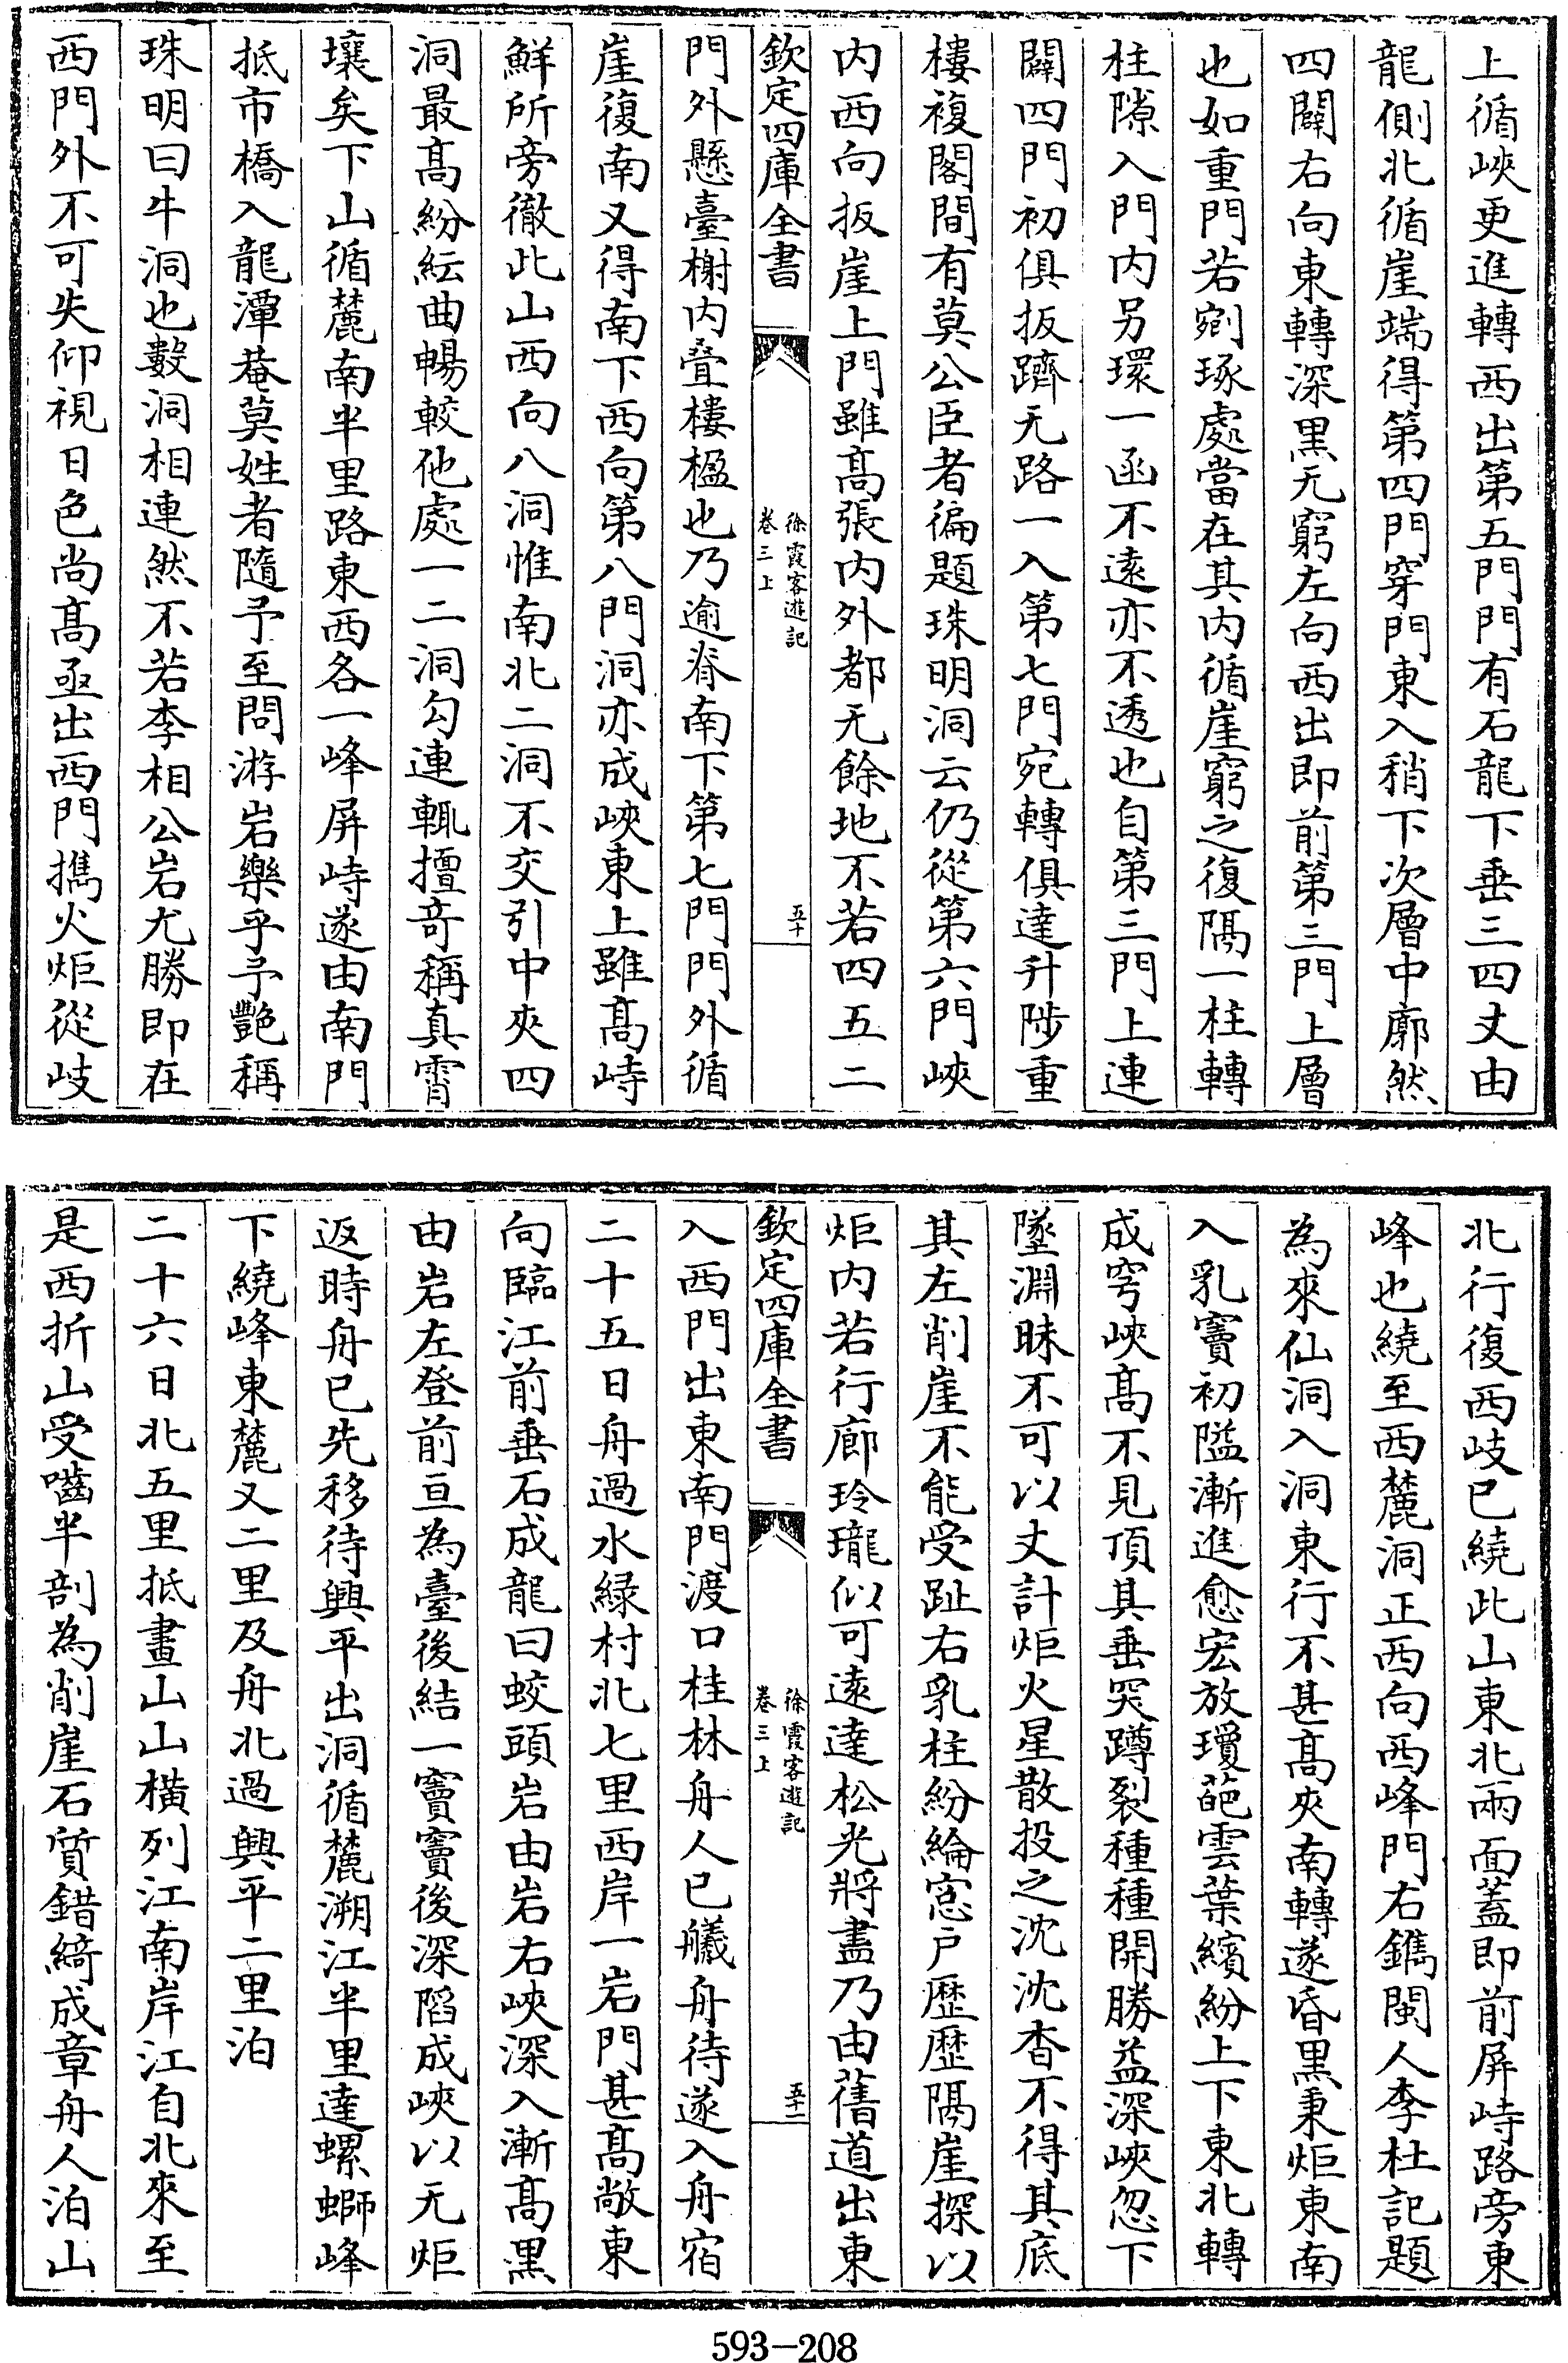 上循峽更進轉西出第五門門有石龍下垂三四丈由
龍側北循崖端得第四門穿門東入稍下次層中廓然
四闢右向東轉深黑无窮左向西出即前第三門上層
也如重門若剜琢處當在其内循崖窮之復隔一柱轉
柱隙入門内另環一函不遠亦不透也自第三門上連
闢四門初俱扳躋无路一入第七門宛轉俱達升陟重
樓複閣間有莫公臣者徧題珠明洞云仍從第六門峽
内西向扳崖上門雖髙張内外都无餘地不若四五二
欽定四庫全書
徐霞客遊記
卷三上
五十
門外懸臺榭内疊樓楹也乃逾脊南下第七門門外循
崖復南又得南下西向第八門洞亦成峽東上雖髙峙
鮮所旁徹此山西向八洞惟南北二洞不交引中夾四
洞最髙紛紜曲暢較他處一二洞勾連輒擅奇稱真霄
壤矣下山循麓南半里路東西各一峰屏峙遂由南門
抵市橋入龍潭菴莫姓者隨予至問游岩樂乎予艷稱
珠明曰牛洞也數洞相連然不若李相公岩尤勝即在
西門外不可失仰視日色尚髙亟出西門攜火炬從岐
北行復西岐已繞此山東北兩面蓋即前屏峙路旁東
峰也繞至西麓洞正西向西峰門右鐫閩人李杜記題
為來仙洞入洞東行不甚髙夾南轉遂昏黒秉炬東南
入乳竇初隘漸進愈宏放瓊葩雲葉繽紛上下東北轉
成穹峽髙不見頂其垂突蹲裂種種開勝益深峽忽下
墜淵昧不可以丈計炬火星散投之沈沈杳不得其底
其左削崖不能受趾右乳柱紛綸窓户歴歴隔崖探以
炬内若行廊玲瓏似可遠達松光將盡乃由舊道出東
欽定四庫全書
徐霞客遊記
卷三上
五十一
入西門出東南門渡口桂林舟人已艤舟待遂入舟宿
二十五日舟過水緑村北七里西岸一岩門甚髙敞東
向臨江前垂石成龍曰蛟頭岩由岩右峽深入漸髙黒
由岩左登前亘為臺後結一竇竇後深陷成峽以无炬
返時舟已先移待興平出洞循麓溯江半里達螺螄峰
下繞峰東麓又二里及舟北過興平二里泊
二十六日北五里抵畫山山横列江南岸江自北來至
是西折山受嚙半剖為削崖石質錯綺成章舟人泊山
593-208